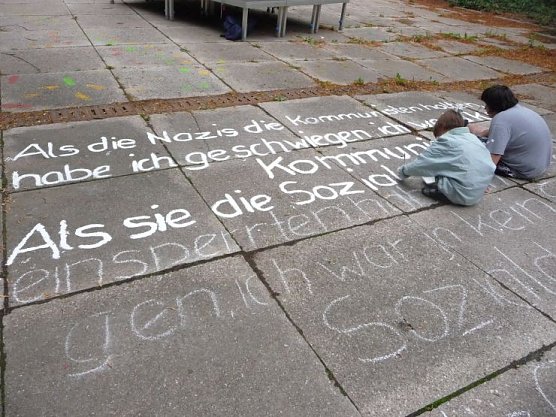 Als die Nazis die Kommunisten holten
habe ich geschwiegen: ich war
Kommuni
Als sie die Sozial
einsperrten h
gen, ich war ja kein
Sozial